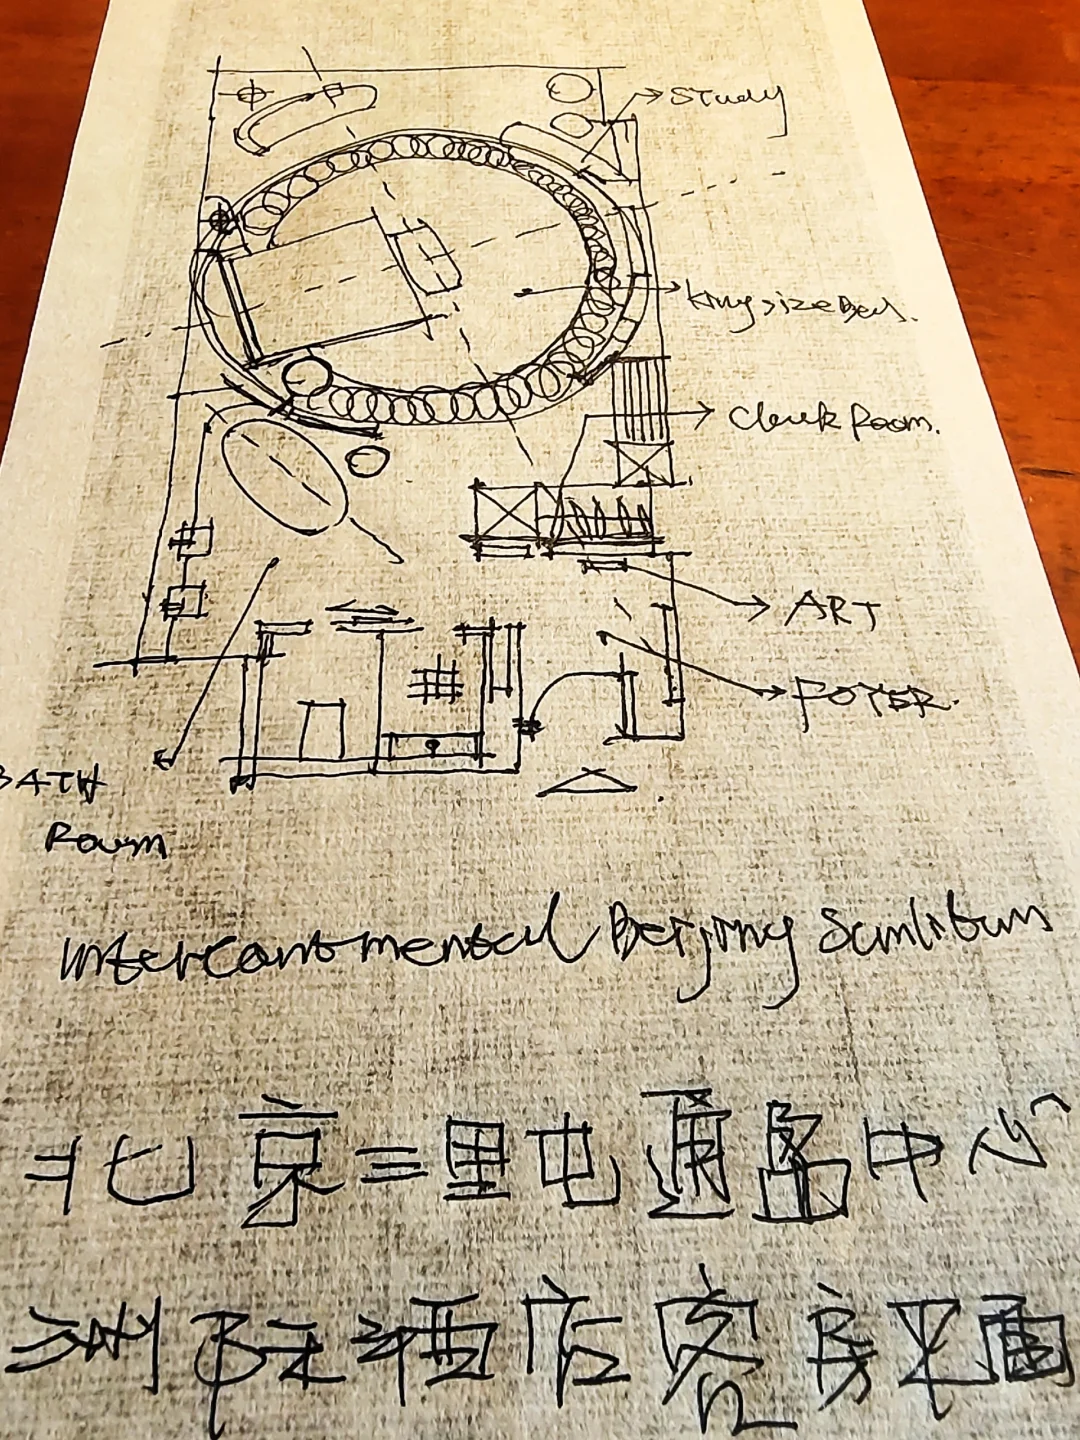 Study
King size Bed.
Cloak Room.
ART
FOYER.
BATH
Room
Intercontinental Beijing Sanlitun
北京三里屯通盈中心
洲际酒店客房平面